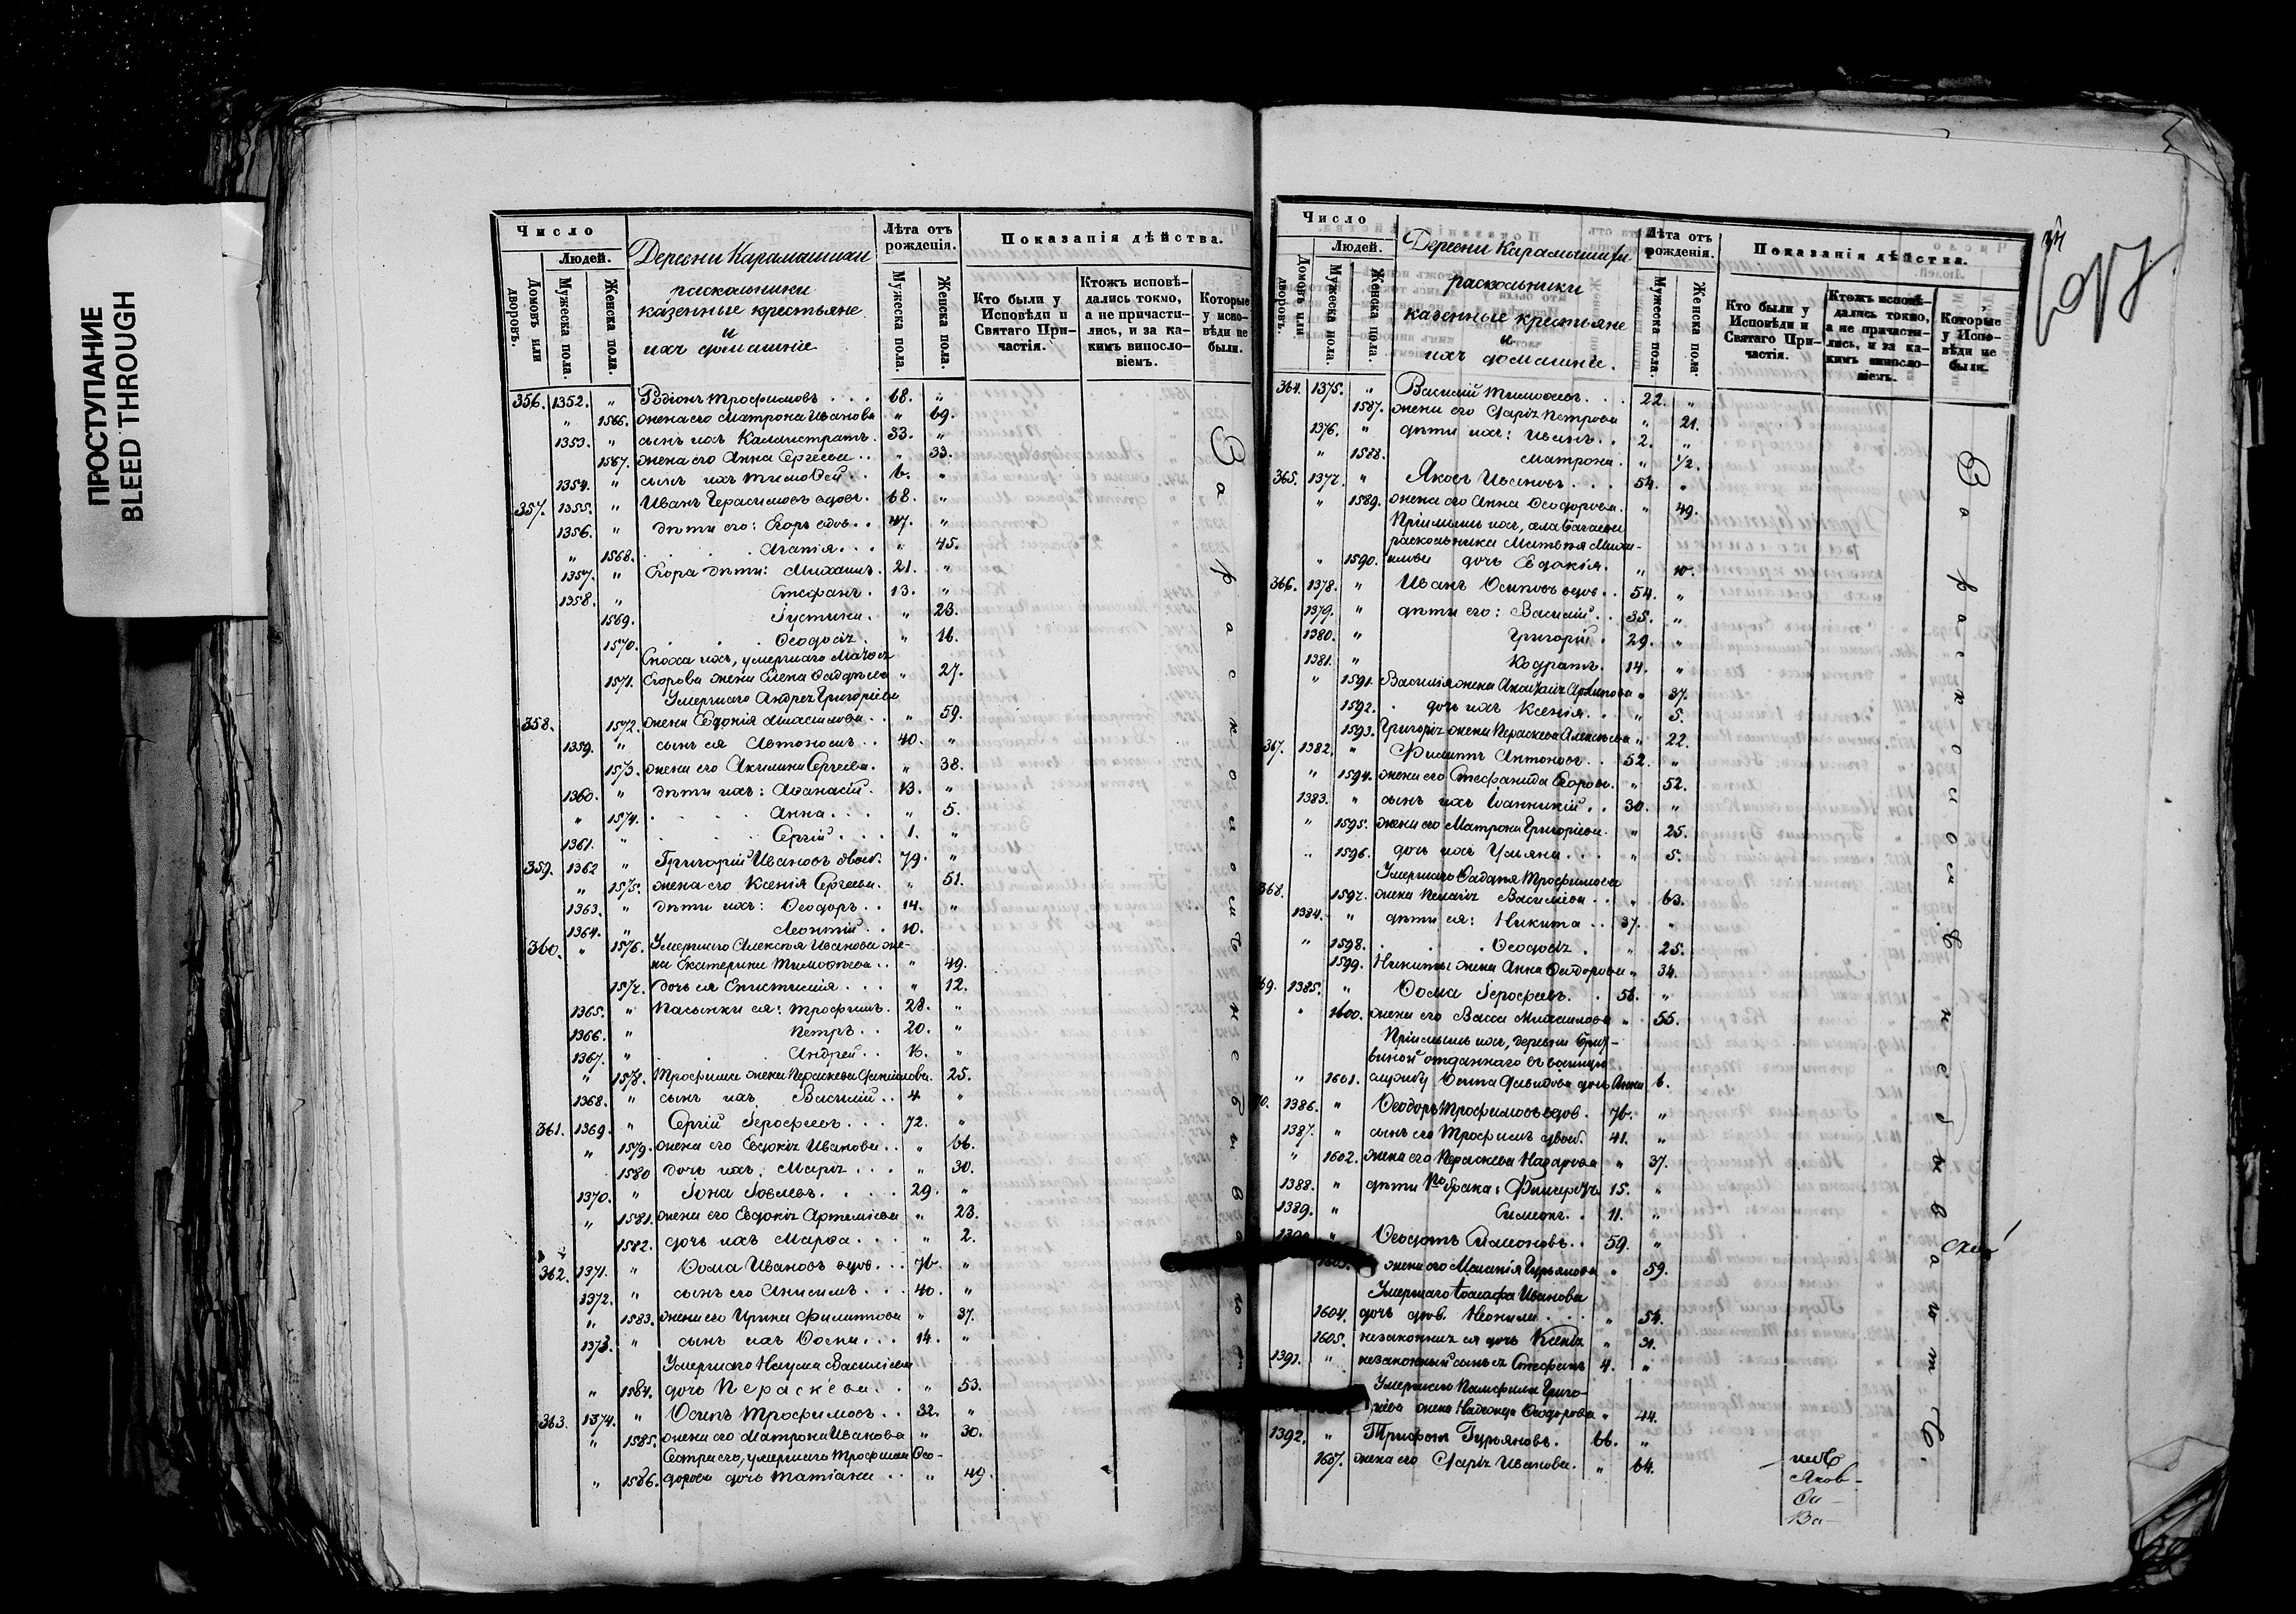 ПРОСТУПАНИЕ
BLEED THROUGH
Число
Людей.
Домовъ или дворовъ.
Мужеска пола.
Женска пола.
Деревни Карамашихи
раскольники
казенные крестьяне
и
ихъ домашніе
Лѣта отъ рожденія.
Мужеска пола.
Женска пола.
Показанія дѣйства.
Кто были у Исповѣди и Святаго Причастія.
Ктожъ исповѣдались токмо, а не причастились, и за какимъ винословіемъ.
Которые у исповѣди не были.
356. 1352. " Родіонъ Трофимовъ . . . 68. "
" 1566. жена его Матрона Иванова " 69.
1353. " сынъ ихъ Калистратъ. 33. "
1567. жена его Анна Сергеева . . " 33.
1354. " сынъ ихъ Тимоѳей . . 6. "
357. 1355. " Иванъ Герасимовъ вдов. 68. "
1356. " дѣти его: Егоръ вдов. . 47. "
" 1568. . . . Агапія . . . " 45.
1357. " Егора дѣти: Михаилъ. 21. "
1358. " Стефанъ. 13. "
1569. Іустина. " 23.
1570. . . . Ѳеодосія . " 16.
Сноха ихъ, умершаго
1571. Егорова жена Елена " 27.
Умершаго Андрея Григоріева
358. 1572. жена Евдокія . . " 59.
1359. " сынъ ея Автономъ . . 40. "
1573. жена его Акилина Сергеева. " 38.
1360. " дѣти ихъ: Аѳанасій. 13. "
" 1574. . . . Анна . . . " 5.
1361. " . . Сергій . . . 1. "
359. 1362 " Григорій Ивановъ двоеб. 79. "
" 1575. жена его Ксенія Сергеева. " 51.
1363. " дѣти ихъ: Ѳеодоръ . . 14. "
1364. " Леонтій . . 10.
360. " 1576. Умершаго Алексѣя Иванова же-
на Екатерина Тимоѳеева . . " 49.
1577. дочь ея Епистимія . . . " 12.
1365. " Пасынки ея: Трофимъ. 28. "
1366. " Петръ . . 20. "
1367. " . . Андрей . . 16. "
" 1578. Трофима жена Параскева " 25.
1368. " сынъ ихъ Василій . . 4. "
361. 1369. " Сергій Іерофеевъ . . . 72. "
" 1579. жена его Евдокія Иванова . . " 66.
1580 дочь ихъ Марія . . . " 30.
1370. " Іона Іовлевъ . . . . 29. "
" 1581. жена его Евдокія Артеміева " 23.
1582. дочь ихъ Марѳа . . . " 2.
362. 1371. " Ѳома Ивановъ вдов. . . 76. "
1372. " сынъ его Анисимъ . . . 40. "
" 1583. жена его Ирина Филиппова " 37.
1373. " сынъ ихъ Ѳома . . . 14. "
Умершаго Наума Васильева
" 1584. дочь Параскева . . " 53.
363. 1374. " Осипъ Трофимовъ . . 32. "
" 1585. жена его Матрона Иванова " 30.
Сестра его, умершаго Трофима Ѳео-
" 1586. дорова дочь Татіана . . " 49.
За расколомъ не бываютъ
Число
Людей.
Домовъ или дворовъ.
Мужеска пола.
Женска пола.
Деревни Карамышихи
раскольники
казенные крестьяне
и
ихъ домашніе.
Лѣта отъ рожденія.
Мужеска пола.
Женска пола.
Показанія дѣйства.
Кто были у Исповѣди и Святаго Причастія.
Ктожъ исповѣдались токмо, а не причастились, и за какимъ винословіемъ.
Которые у Исповѣди не были.
364. 1375. " Василій Тимоѳеевъ. . . 22. "
1587. жена его Дарія Петрова " 21.
1376. " дѣти ихъ: Иванъ . . 2. "
" 1588. Матрона. " 1/2.
365. 1377. " Яковъ Ивановъ . . . 54. "
" 1589. жена его Анна Ѳеодорова. " 49.
Пріемышъ ихъ,
раскольника Матвѣя Миха-
" 1590. илова дочь Евдокія. " 10.
366. 1378. " Иванъ Осиповъ вдов. . 54. "
1379. " дѣти его: Василій . . 35. "
1380. " Григорій. 29. "
1381. " Кодратъ. 14. "
" 1591. Василія жена Архипова " 37.
1592. . дочь ихъ Ксенія . . " 5.
1593. Григорія жена Параскева Алексѣева " 22.
367. 1382. " Филиппъ Антоновъ . . 52. "
" 1594. жена его Стефанида Егорова. " 52.
1383. " сынъ ихъ Іоанникій . . 30. "
" 1595. жена его Матрона Григоріева. " 25.
" 1596. дочь ихъ Ульяна . . . " 5.
Умершаго Трофимова
368. 1597. жена Пелагія Васильева . . " 63.
1384. " дѣти ея: Никита . . 37. "
" 1598. . . . Ѳеодосія . " 25.
1599. Никиты жена Анна " 34.
69. 1385. " Ѳома Іерофеевъ. . 56. "
" 1600. жена его Васса " 55.
Пріемышъ ихъ, деревни
отданнаго въ военную
" 1601. службу Осипа Давидова дочь Анна 6.
70. 1386. " Ѳеодоръ Трофимовъ вдов. 76. "
1387. " сынъ его Трофимъ двоеб. 41. "
" 1602. жена его Параскева Назарова " 37.
1388. " дѣти 1го брака: 15. "
1389. " Симеонъ . . 11. "
" Ѳеодотъ Симоновъ . . 59. "
жена его Меланія Гурьянова " 59.
Умершаго Іоасафа Иванова
1604. дочь дѣв. Неонила . . . " 54.
1605. незаконная ея дочь Ксенія " 21.
1391. " незаконный сынъ ея Стефанъ 4. "
Умершаго Памфила Григо-
ріева жена Надежда Ѳеодорова " 44.
1392. " Трифонъ Гурьяновъ. 66. "
1607. жена его Дарія Иванова. " 64.
За расколомъ не бываютъ.